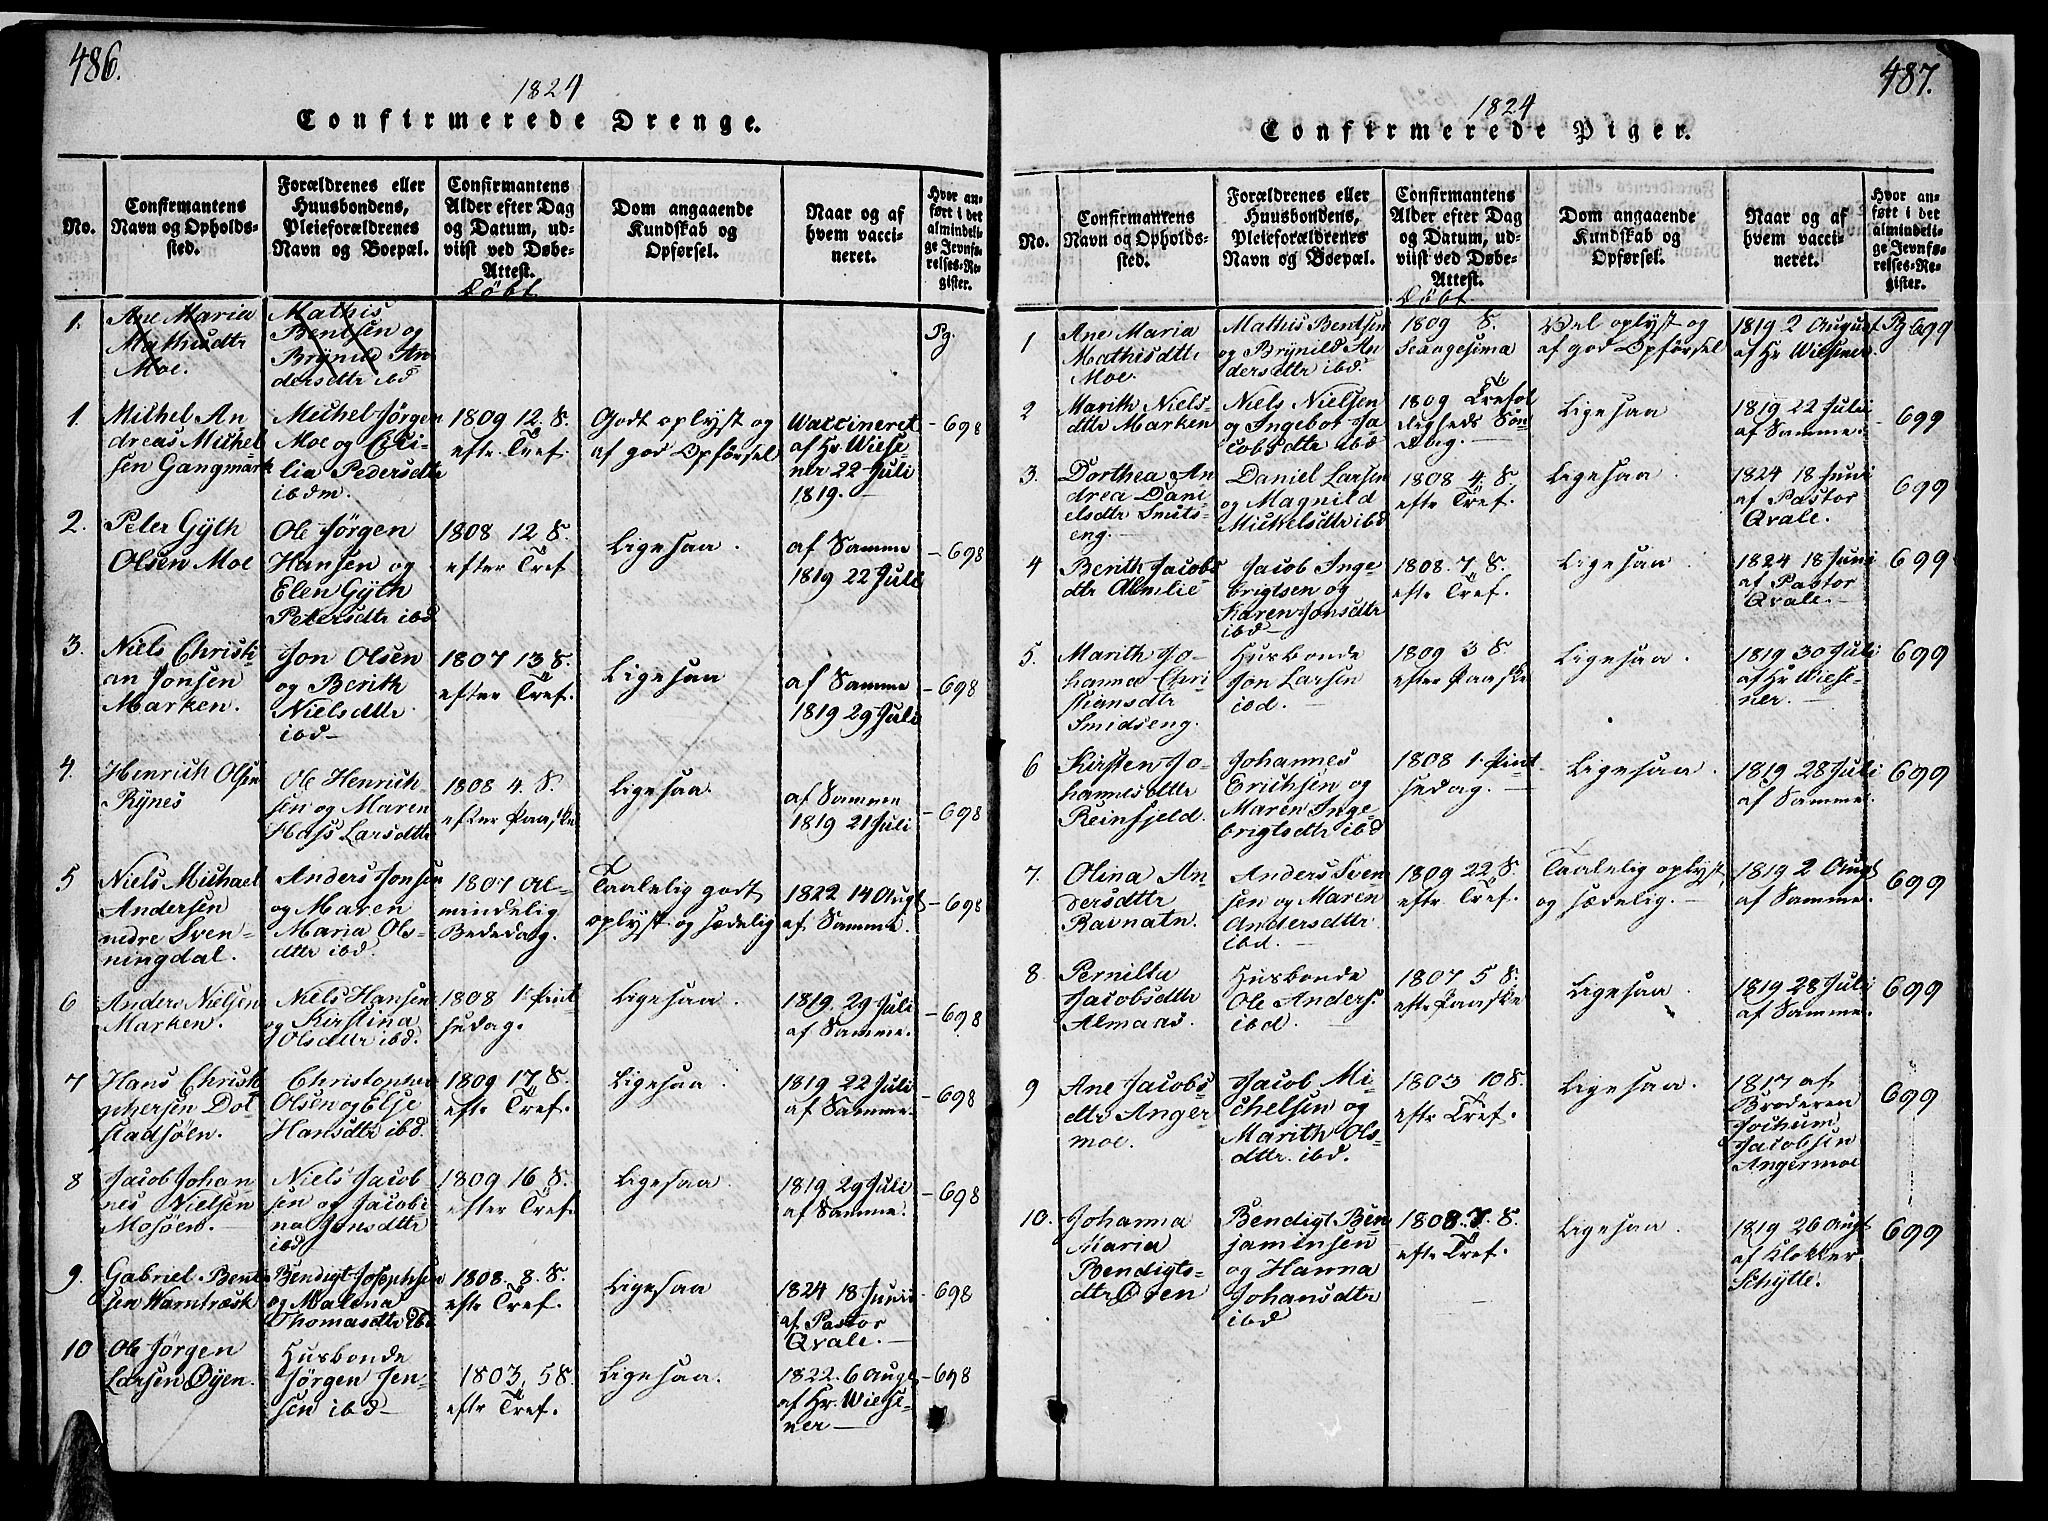 486.
1824
Confirmerede Drenge.
No.
Confirmantens
Navn og Opholds-
sted.
Forældrenes eller
Huusbondens,
Pleieforældrenes
Navn og Boepæl.
Confirmantens
Alder efter Dag
og Datum, ud-
viist ved Døbe-
Attest.
Döbt
Dom angaaende
Kundskab og
Opførsel.
Naar og af
hvem vacci-
neret.
Hvor an-
ført i det
almindeli-
ge Jevnfø-
relses-Re-
gister.
1.
Ane Maria
Mathisdtr
Moe.
Mathis
Bentsen og
Brÿnild An-
dersdtr ibd
Pg.
1.
Michel An
dreas Michel
sen Gangmark
Michel Jørgen
Moe og
lia Pedersdtr
ibdm.
1809 12. S.
eftr Tref.
Godt oplyst og
af god Opförsel
Waccineret
af Hr. Wiese
ner 22 Juli
1819.
- 698
2.
Peter Gÿth
Olsen Moe
Ole Jørgen
Hansen og
Elen Gÿth
Petersdtr ibd
1808 12 S.
efter Tref
Ligesaa.
af Samme
1819 22 Juli
- 698
3.
Niels Christi-
an Jonsen
Marken.
Jon Olsen
og Berith
Nielsdttr
ibd
1807 13 S.
efter Tref.
Ligesaa
af Samme
1819 29 Juli
- 698
4.
Henrich Olsen
Rÿnes
Ole Henrich-
sen og Maren
Hass Larsdttr
1808 4. S.
efter Paaske
Ligesaa
af Samme
1819 21 Juli
- 698
5
Niels Michael
Andersen
nedre Sven-
ningdal.
Anders Jonsen
og Maren
Maria Ols-
dttr ibd.
1807 Al-
mindelig
Bededag.
Taalelig godt
oplyst og sædelig
1822 14 Augt
af Samme.
- 698
6
Anders Nielsen
Marken.
Niels Hansen
og Kirstina
Olsdttr ibd.
1808 1. Pint
sedag.
Ligesaa.
1819. 29 Juli
af Samme.
- 698
7
Hans Christ
ophersen Dol
stadsöen.
Christopher
Olsen og Else
Hansdttr ibd.
1809 17 S.
eftr Tref.
Ligesaa.
1819 22 Juli
af Samme.
- 698
8
Jacob Johan
nes Nielsen
Mosöen.
Niels Jacob
sen og Jacobi
na Jonsdttr
ibd
1809 16 S.
efter Tref.
Ligesaa.
1819 29 Juli
af Samme.
- 698
9.
Gabriel Bent
sen Warntræsk
Bendigt Josephsen
og Malena
Thomasdttr ibd
1808. 8. S.
eftr Tref.
Ligesaa
1824 18 Junii
af Pastor
Qvale.
- 698
10
Ole Jörgen
Larsen Öÿen.
Husbonde
Jörgen Jen-
sen ibd
1803. 5 S.
eftr Tref.
Ligesaa.
1822. 6 Augt
af Hr. Wiese
ner
- 698
487.
1824
Confirmerede Piger.
No.
Confirmantens
Navn og Opholds-
sted.
Forældrenes eller
Huusbondens,
Pleieforældrenes
Navn og Boepæl.
Confirmantens
Alder efter Dag
og Datum, ud-
viist ved Døbe-
Attest.
Döbt
Dom angaaende
Kundskab og
Opførsel.
Naar og af
hvem vacci-
neret.
Hvor an-
ført i det
almindeli-
ge Jevnfø-
relses-Re-
gister.
1
Ane Maria
Mathisdttr
Moe.
Mathis Bentsen
og Brÿnild An
dersdttr ibd.
1809 S.
Sexagesima
Vel oplyst og
af god Opförsel
1819 2 August
af Hr Wiesener
Pg 699
2
Marith Niels-
dttr Marken
Niels Nielsen
og Ingebor Ja
cobsdttr ibd
1809 Trefol
digheds Søn
dag.
Ligesaa
1819 22 Julii
af Samme.
699
3.
Dorthea An
drea Dani
elsdtr Smits-
eng.
Daniel Larsen
og Magnild
Mickelsdttr ibd
1808 4. S.
eftr Tref.
Ligesaa
1824 18 Juni
af Pastor
Qvale.
699
4
Berith Jacobs
dttr Almlie
Jacob Inge-
brigtsen og
Karen Jonsdttr
ibd
1808. 7. S.
eftr Tref.
Ligesaa
1824 18 Juni
af Pastor
Qvale.
699
5.
Marith Jo-
hanna Chri-
stiansdtr
Smidseng.
Husbonde
Jon Larsen
ibd.
1809 3 S
efter Paaske
Ligesaa.
1819 30 Juli
af Hr Wiese-
ner.
699
6
Kirsten Jo-
hannesdttr
Reinfjeld.
Johannes
Erichsen og
Maren Inge-
brigtsdtr ibd
1808 1. Pint
sedag.
Ligesaa.
1819 28 Juli
af Samme.
699
7.
Olina An-
dersdttr
Ravnatn.
Anders Sven
sen og Maren
Andersdttr
ibd.
1809 22 S.
eftr Tref.
Taalelig oplyst
og sædelig.
1819 2 Augt
af Samme.
699
8.
Pernilla
Jacobsdttr
Almaas.
Husbonde
Ole Anders:
ibd.
1807 5 S.
eftr Paaske
Ligesaa.
1819 28 Juli
af Samme.
699
9
Ane Jacobs
dttr Anger
moe.
Jacob Mi-
chelsen og
Marith Ols-
dttr. ibd.
1803 10 S.
eftr Tref.
Ligesaa.
1817 af
Broderen
Jochum
Jacobsen
Angermoe
699
10.
Johanna
Maria
Bendigts-
dtr Öien
Bendigt Ben
jaminsen
og Hanna
Johansdttr
ibd
1808. 7. S.
eftr Tref.
Ligesaa.
1819 26 Augt
af Klokker
Schÿtte.
699